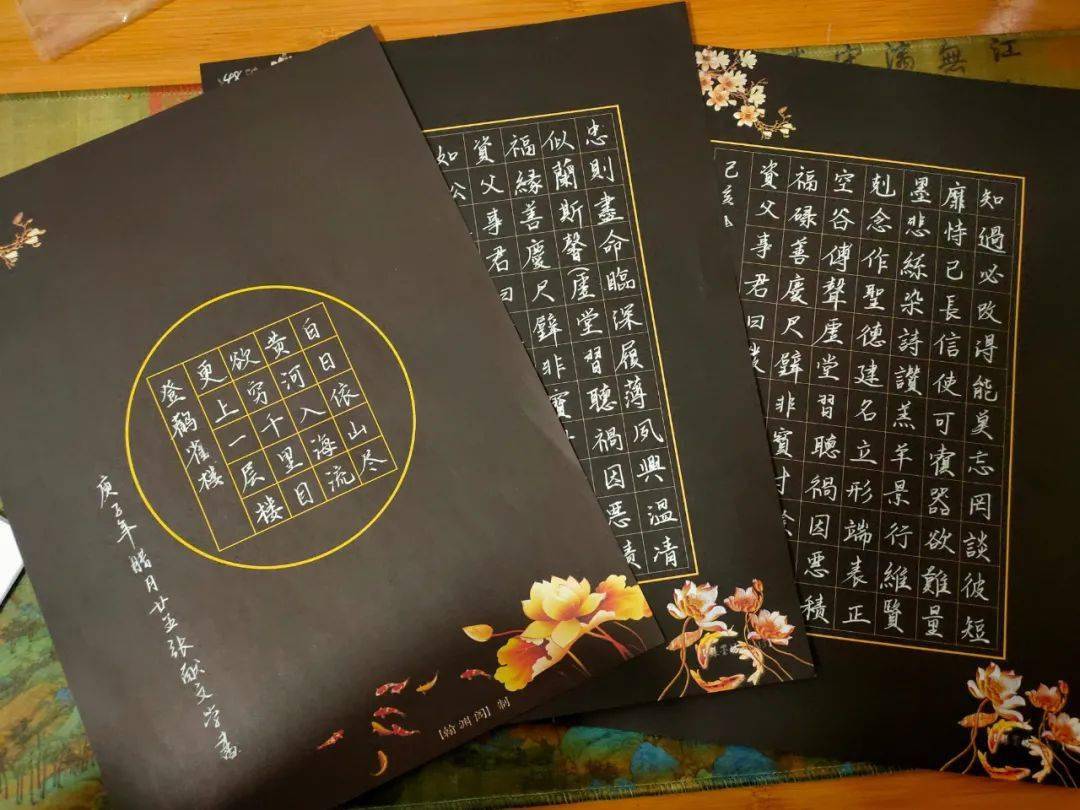 白日依山尽
黄河入海流
欲穷千里目
更上一层楼
登鹳雀楼
庚子年腊月廿五张文学书
[翰渊阁] 制
忠則盡命臨深履薄夙興溫清
似蘭斯馨(虛堂習聽禍因悪積
福緣善慶尺璧非寶
資父事君曰
如公
知過必改得能莫忘罔談彼短
靡恃己長信使可覆器欲難量
墨悲絲染詩讚羔羊景行維賢
剋念作聖德建名立形端表正
空谷傳聲虛堂習聽禍因悪積
福碌善慶尺璧非寶寸
資父事君曰
己亥
江
無
滿